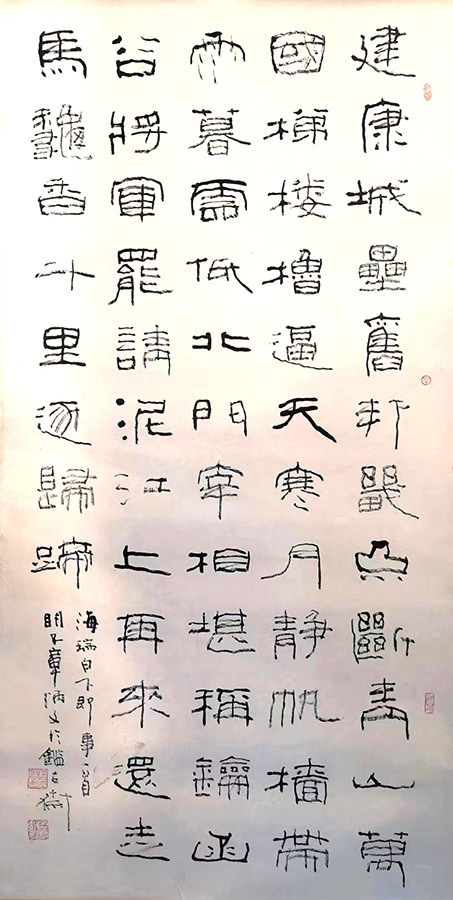 建康城壘舊邦畿凸斷青山萬
國梯樓櫓逼天寒月靜帆檣帶
雨暮雲低北門宰相堪稱鑰函
谷將軍罷請泥江上再來還走
馬龝香斗里逐歸蹄
海瑞白下即事一首
章炳文於鑑古